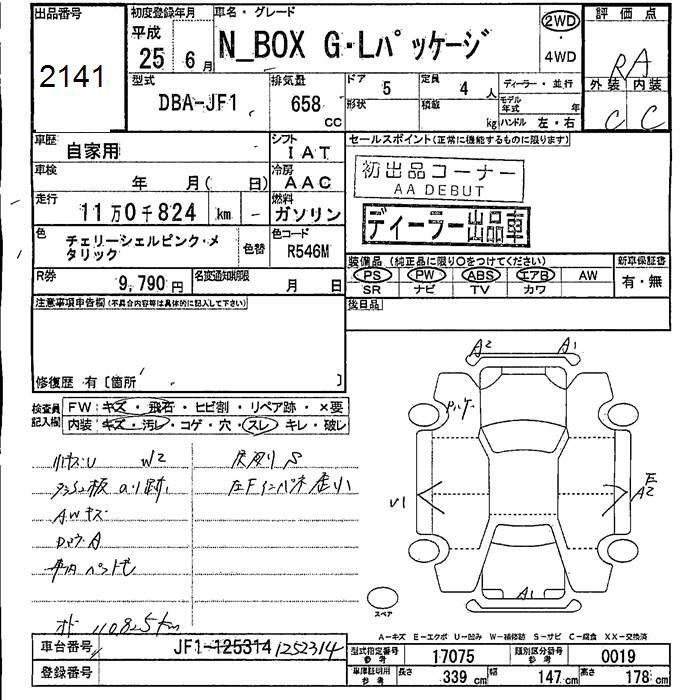 出品番号
2141
初度登録年月
平成
25年 6月
車名・グレード
N_BOX G・Lパッケージ
2WD
・
4WD
評価点
RA
外装 内装
C C
型式
DBA-JF1
排気量
658
cc
ドア
5
定員
4 人
形状
積載
kg
ディーラー・並行
モデル年式 年
ハンドル 左・右
車歴
自家用
シフト
IAT
車検
年 月( 日)
冷房
AAC
走行
11万0千824 km
燃料
ガソリン
色
チェリーシェルピンク・メ
タリック
色替
色コード
R546M
R券
9,790円
名変通知期限
月 日
セールスポイント(正常に機能するものに限ります)
初出品コーナー
AA DEBUT
ディーラー出品車
装備品 (純正品に限り○をつけてください)
PS PW ABS エアB AW
SR ナビ TV カワ
新車保証書
有・無
後日品
注意事項申告欄(不具合内容等は具体的に記入して下さい)
修復歴 有〔箇所 〕
検査員
記入欄
FW:キズ・飛石・ヒビ割・リペア跡・×要
内装:キズ・汚レ・コゲ・穴・スレ キレ・破レ
W2
AWキズ
110825km
A2 A1
U1
E
A2
A1
スペア
A−キズ E−エクボ U−凹み W−補修跡 S−サビ C−腐食 XX−交換済
車台番号
JF1-125314 1252314
登録番号
型式指定番号
参考
17075
類別区分番号
参考
0019
車庫証明用
参考
長さ
339 cm
幅
147 cm
高さ
178 cm